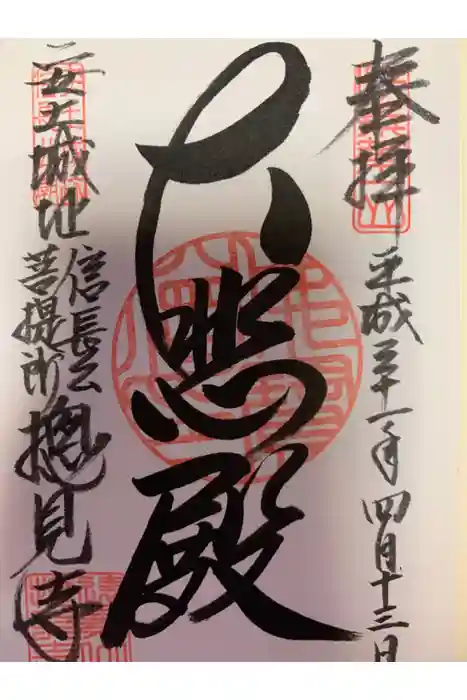 奉拝
平成三十一年四月十三日
大悲殿
安土城址
信長公
菩提所
摠見寺